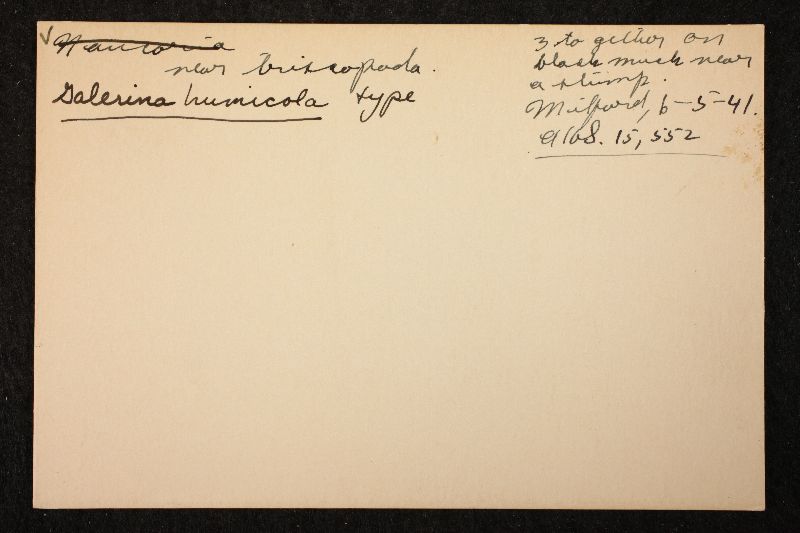 Naucoria
near triscopoda.
Galerina humicola type
3 to gether on
black muck near
a stump.
Milford, 6-5-41.
AHS. 15,552